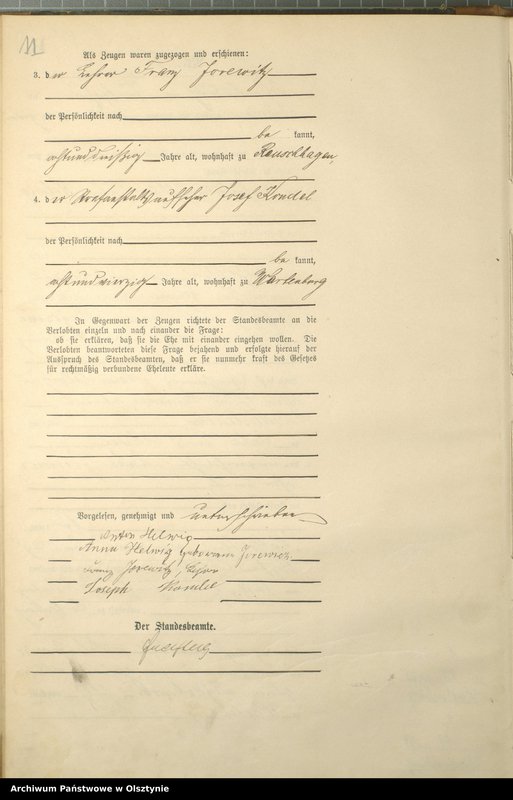 11
Als Zeugen waren zugezogen und erschienen:
3. der Lehrer Franz Jorewitz
der Persönlichkeit nach
be kannt,
achtunddreißig Jahre alt, wohnhaft zu Reuschhagen,
4. der Strafanstaltsaufseher Josef Kondel
der Persönlichkeit nach
be kannt,
achtundvierzig Jahre alt, wohnhaft zu Wartenburg
In Gegenwart der Zeugen richtete der Standesbeamte an die
Verlobten einzeln und nach einander die Frage:
ob sie erklären, daß sie die Ehe mit einander eingehen wollen. Die
Verlobten beantworteten diese Frage bejahend und erfolgte hierauf der
Ausspruch des Standesbeamten, daß er sie nunmehr kraft des Gesetzes
für rechtmäßig verbundene Eheleute erkläre.
Vorgelesen, genehmigt und unterschrieben
Anton Helwig
Anna Helwig geborene Jorewicz.
Franz Jorewitz, Lehrer
Joseph
Der Standesbeamte.
Archiwum Państwowe w Olsztynie